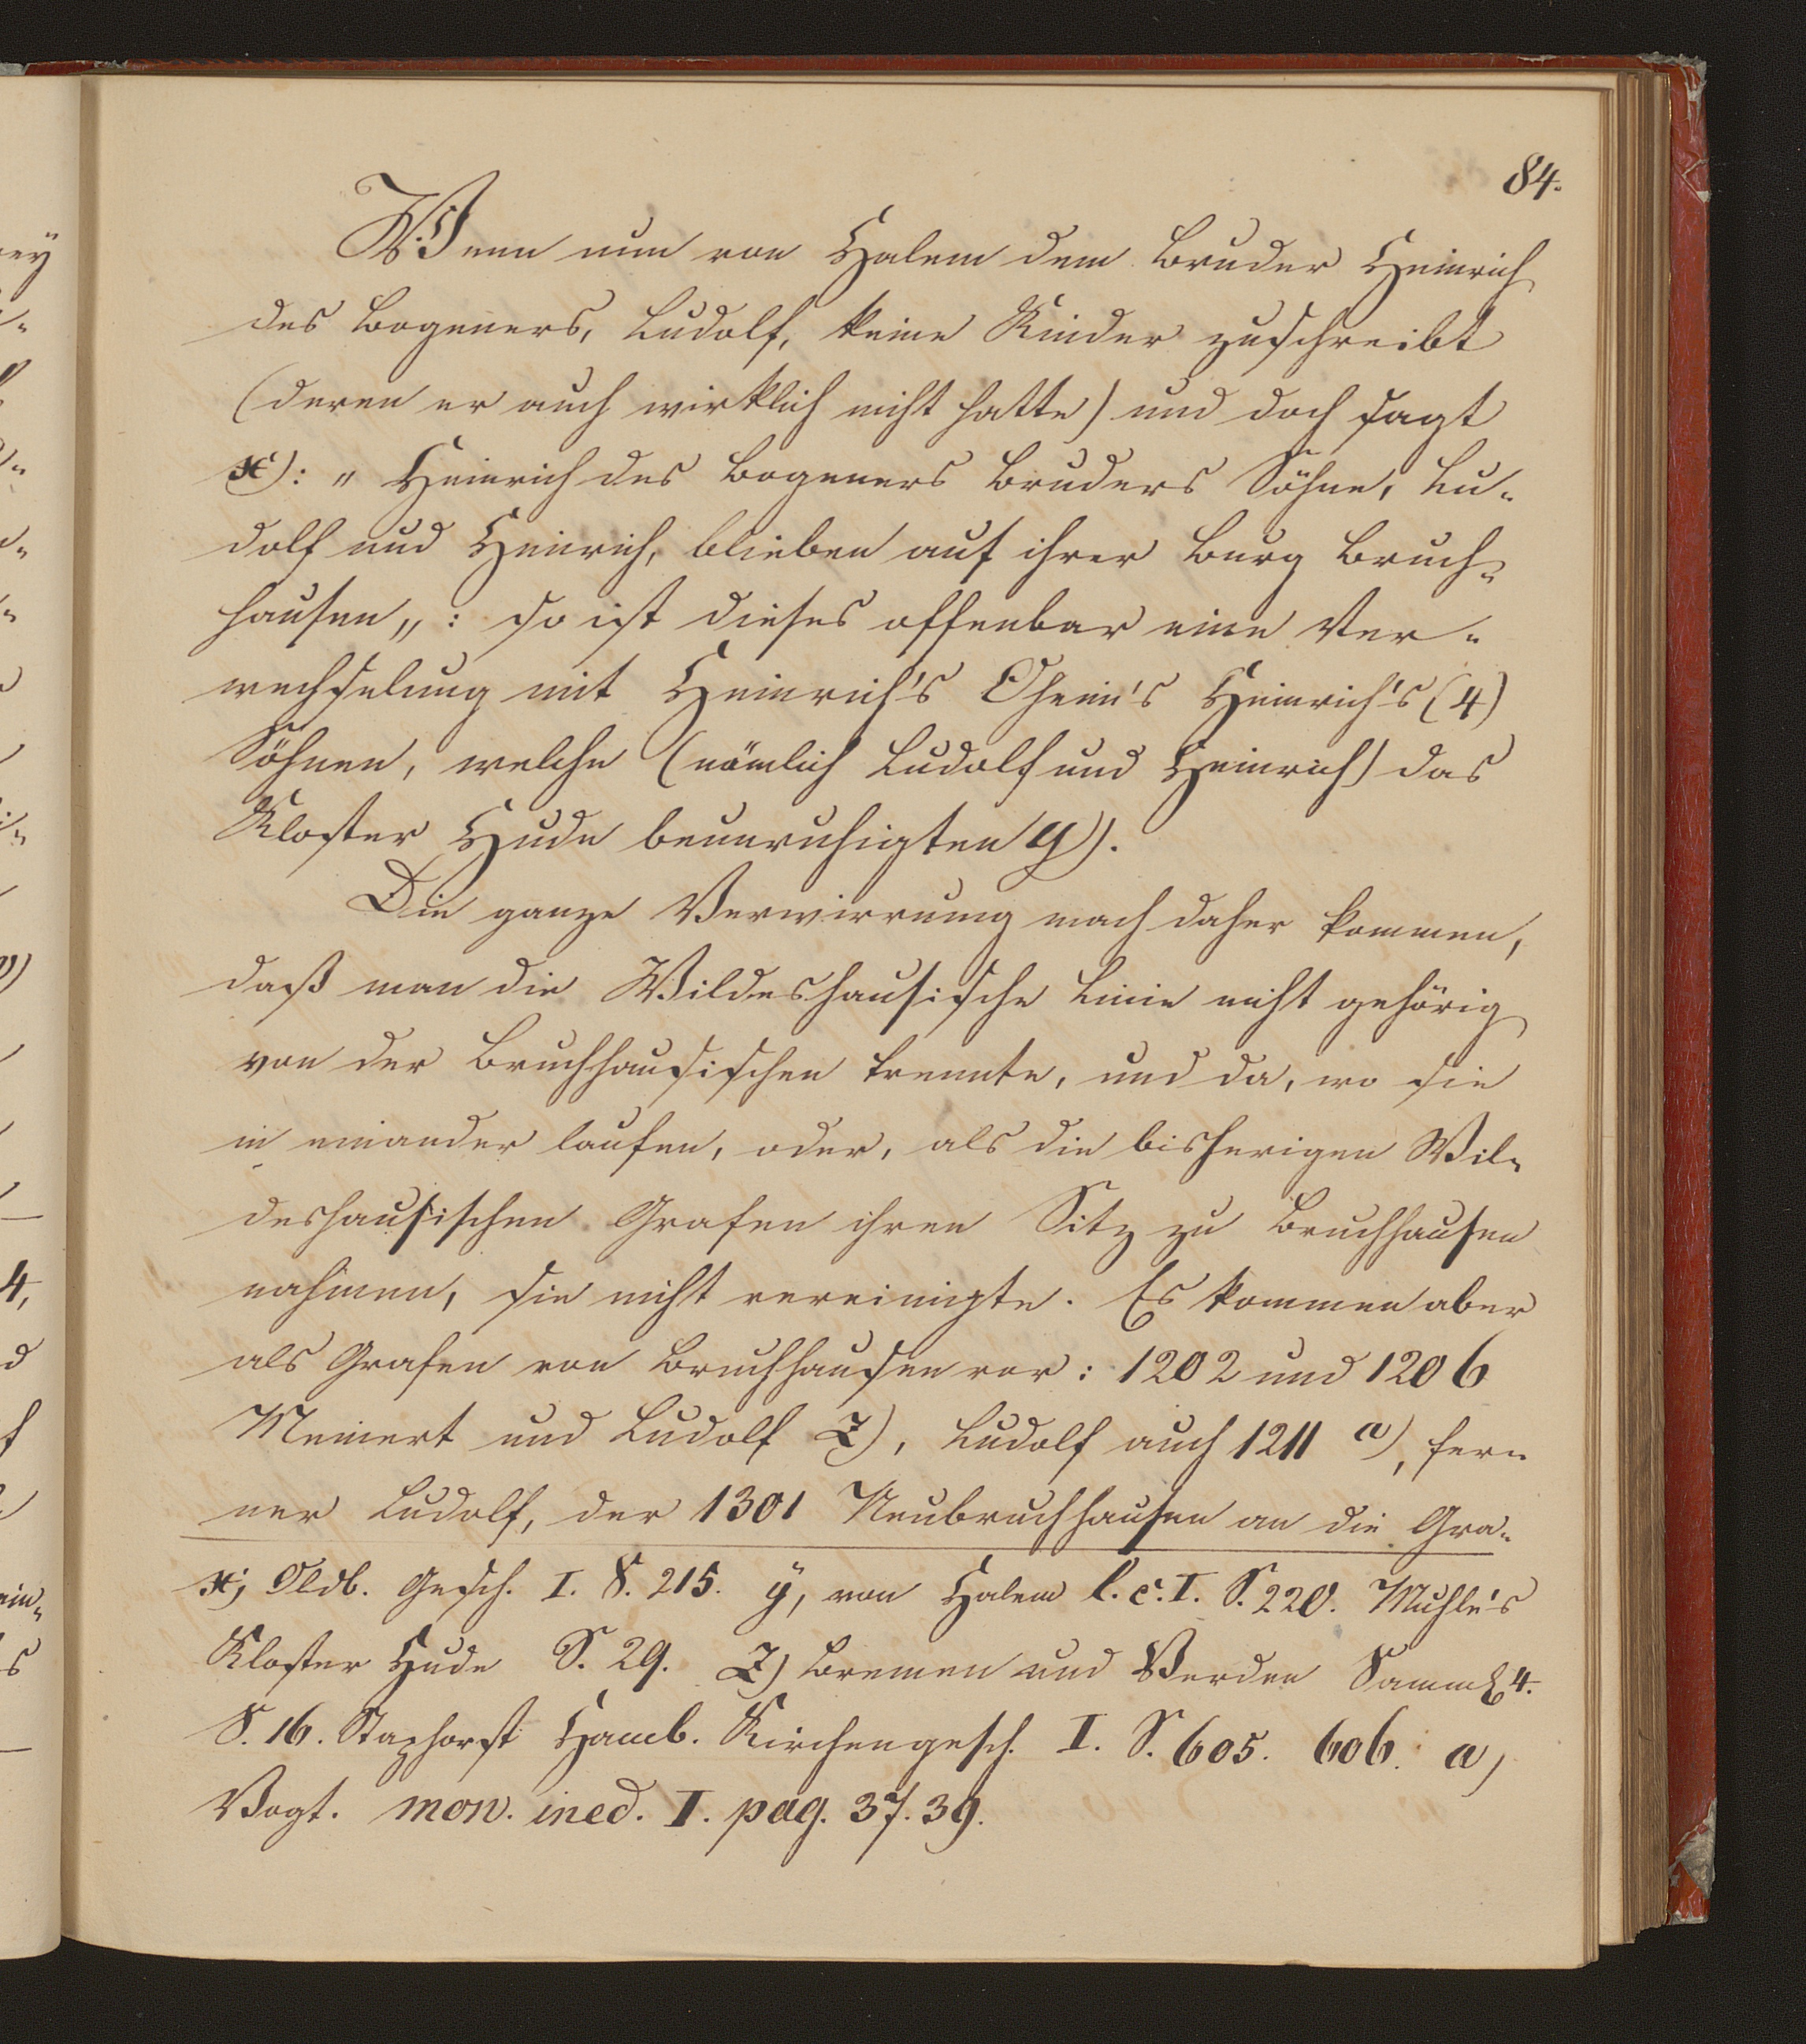 84.
Wenn nun von Halem dem Bruder Heinrich
des Bogeners, Ludolf, keine Kinder zuschreibt
(deren er auch wirklich nicht hatte) und doch sagt
x): „Heinrich des Bogeners Bruders Söhne, Lu-
dolf und Heinrich, blieben auf ihrer Burg Bruch-
hausen„: so ist dieses offenbar eine Ver-
wechselung mit Heinrich's Oheim's Heinrich's (4)
Söhnen, welche (nämlich Ludolf und Heinrich) das
Kloster Hude beunruhigten y).
Die ganze Verwirrung mach daher kommen,
daß man die Wildeshausische Linie nicht gehörig
von der Bruchhausischen trennte, und da, wo sie
in einander laufen, oder, als die bisherigen Wil-
deshausischen Grafen ihren Sitz zu Bruchhausen
nahmen, sie nicht vereinigte. Es kommen aber
als Grafen von Bruchhausen vor: 1202 und 1206
Meinert und Ludolf Z), Ludolf auch 1211 a), fer-
ner Ludolf, der 1301 Neubruchhausen an die Gra-
x) Oldb. Gesch. I. S. 215. ÿ, von Halem l. c. I. S. 220. Muhle's
Kloster Hude S. 29. Z) Bremen und Verden Samml 4.
S. 16. Staphorst Hamb. Kirchengesch. I. S. 605. 606. a)
Vogt. mon. ined. I. pag. 37. 39.